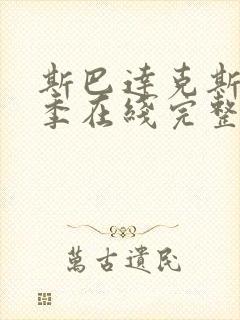 斯巴达克斯
季在綫完整
萬古遺民